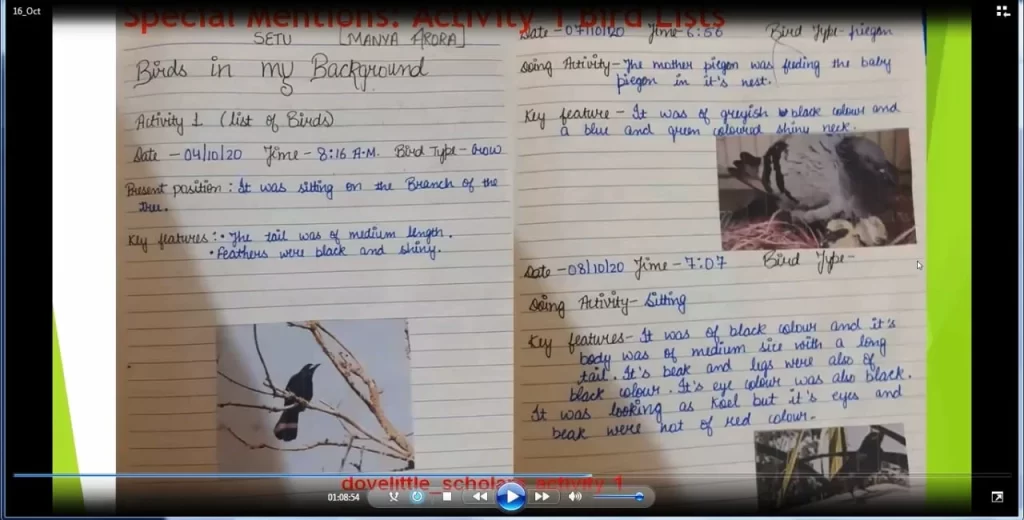 16_Oct
Special Mentions: Activity 1 Bird Lists
SETU [MANYA ARORA]
Birds in my Background
Activity 1 (List of Birds)
Date - 04/10/20 Time - 8:16 A.M. Bird Type - Crow
Present position : It was sitting on the Branch of the
tree.
Key features : • The tail was of medium length.
• Feathers were black and shiny.
Date - 07/10/20 Time - 6:56 Bird Type - piegon
Doing Activity - The mother piegon was feeding the baby
piegon in it's nest.
Key feature - It was of greyish black colour and
a blue and green coloured shiny neck.
Date - 08/10/20 Time - 7:07 Bird Type -
Doing Activity - Sitting
Key features - It was of black colour and it's
body was of medium size with a long
tail. It's beak and legs were also of
black colour. It's eye colour was also black.
It was looking as Koel but it's eyes and
beak were not of red colour.
dovelittle_scholars_activity_1
01:08:54